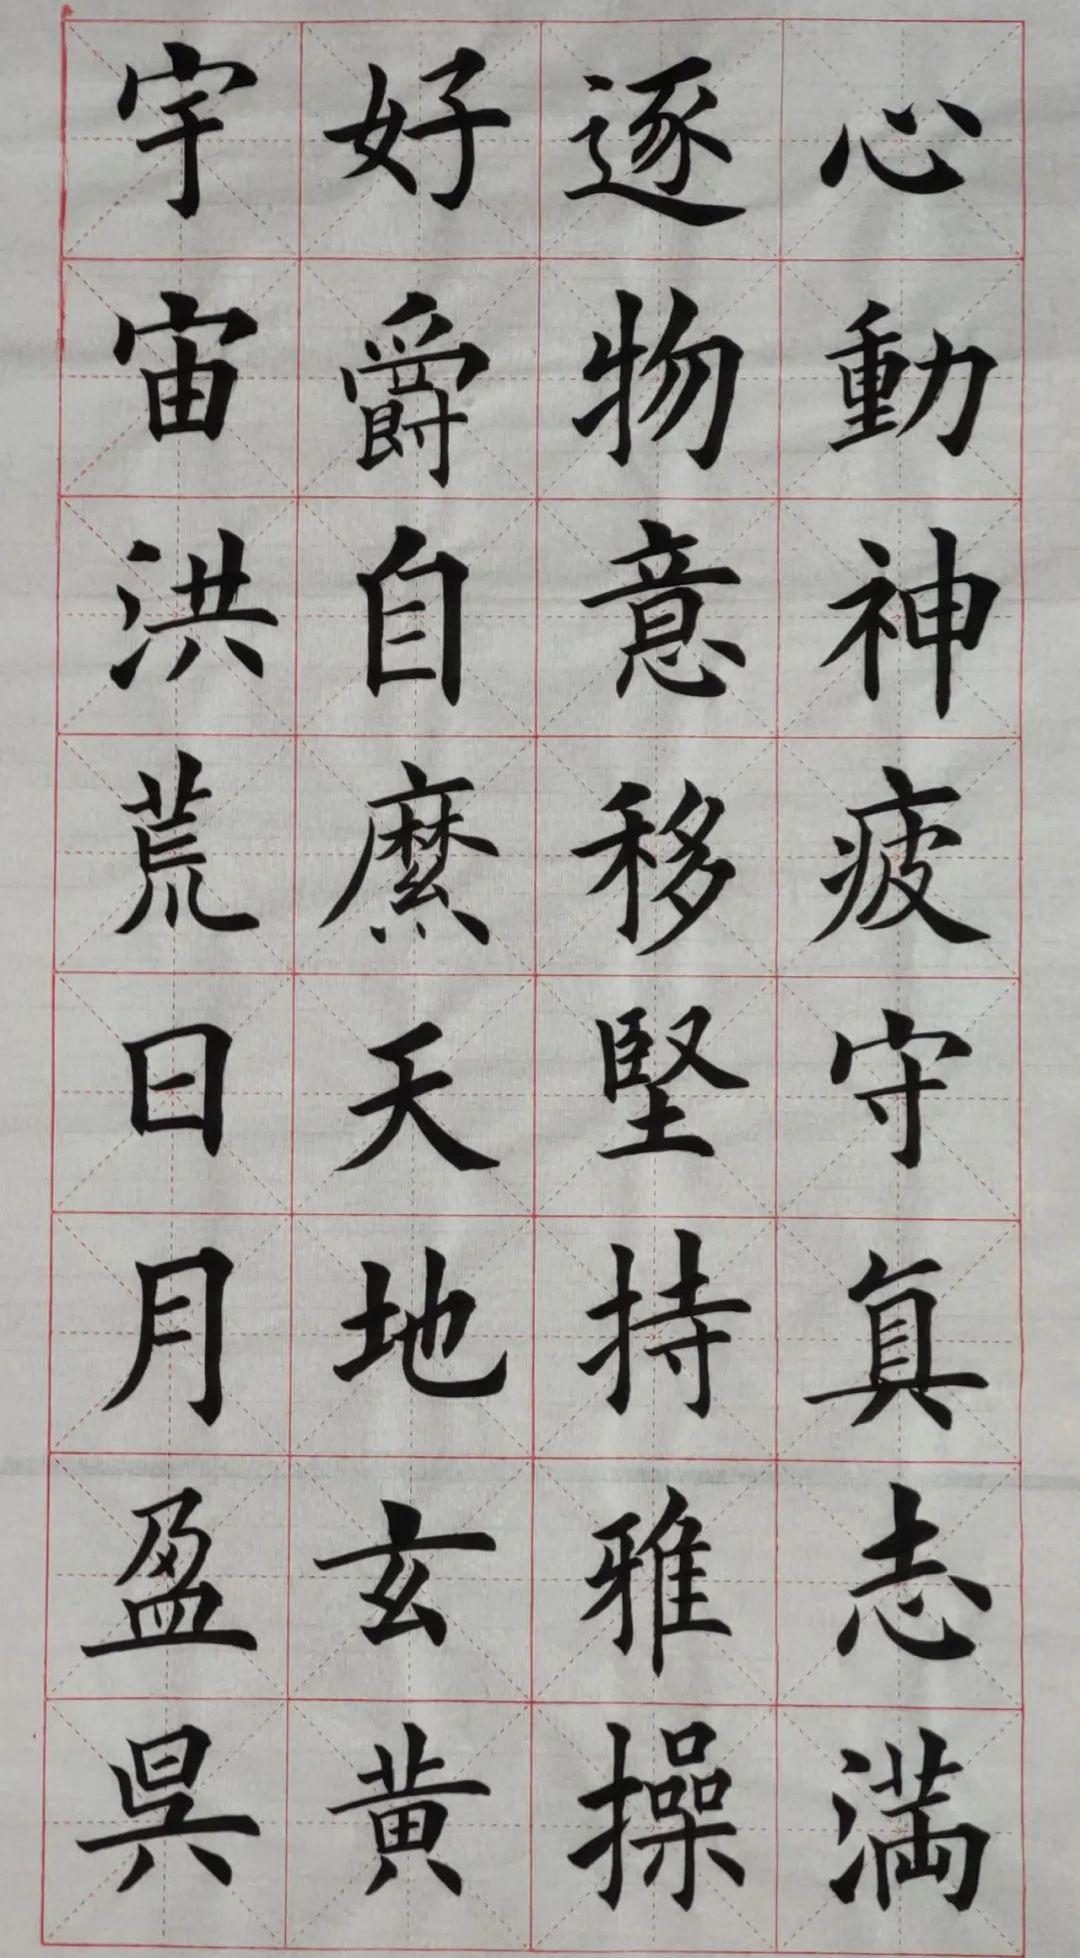 心動神疲守真志滿
逐物意移堅持雅操
好爵自縻天地玄黃
宇宙洪荒日月盈昃